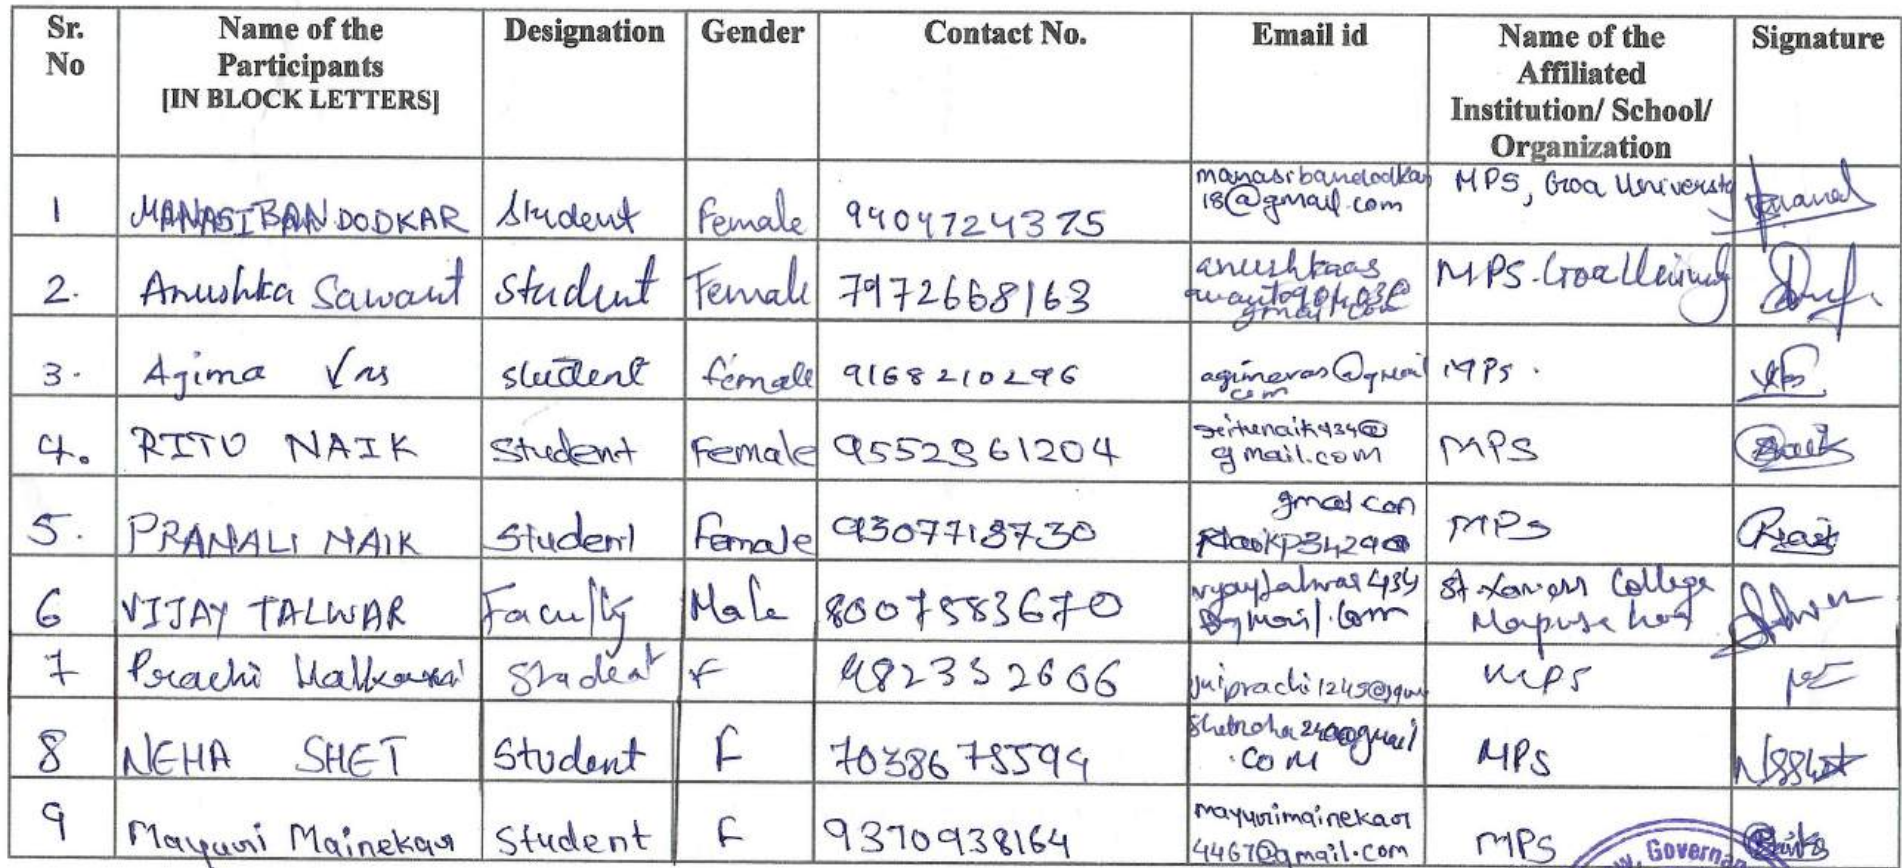 Sr. No | Name of the Participants [IN BLOCK LETTERS] | Designation | Gender | Contact No. | Email id | Name of the Affiliated Institution/ School/ Organization | Signature
1 | MANASI BANDODKAR | Student | Female | 9404724375 | manasibandodkar18@gmail.com | MPS, Goa University
2. | Anushka Sawant | Student | Female | 7972668163 | gmail.com | MPS-Goa University
3. | Agima Vas | student | female | 9168210296 | agimavas@gmail.com | MPS.
4. | RITU NAIK | Student | Female | 9552961204 | gmail.com | MPS
5. | PRANALI NAIK | Student | Female | 9307718730 | MPS
6 | VIJAY TALWAR | Faculty | Male | 8007583670 | vijaytalwar434@gmail.com | St. Xaviers College Mapusa Goa
7 | Prachi | Student | F | MPS
8 | NEHA SHET | Student | F | 7038675594 | MPS
9 | Mayuri Mainekar | Student | F | 9370938164 | mayurimainekar4467@gmail.com | MPS